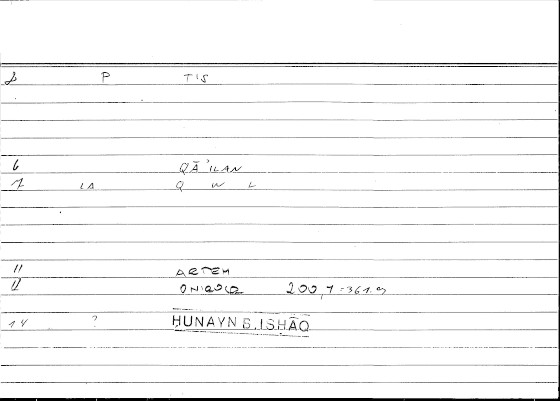 P TIS
6 QĀ'ILAN
7 LA Q W L
11 ARTEM
ONIROCR 200,1=361.9
14 ? HUNAYN B. ISHĀQ